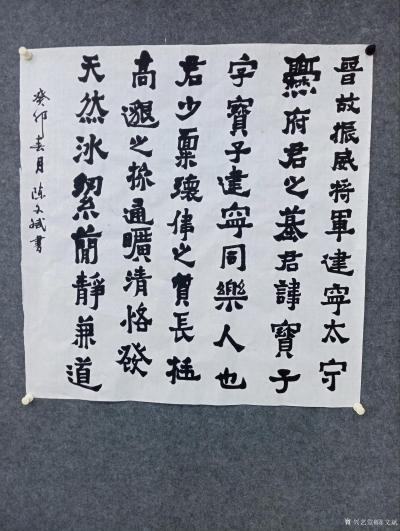 晉故振威將軍建寧太守
爨府君之墓君諱寶子
字寶子建寧同樂人也
君少稟瓌偉之質長挺
高邈之操通曠清恪發
天然冰絜簡靜兼道
癸卯春月陳文斌書